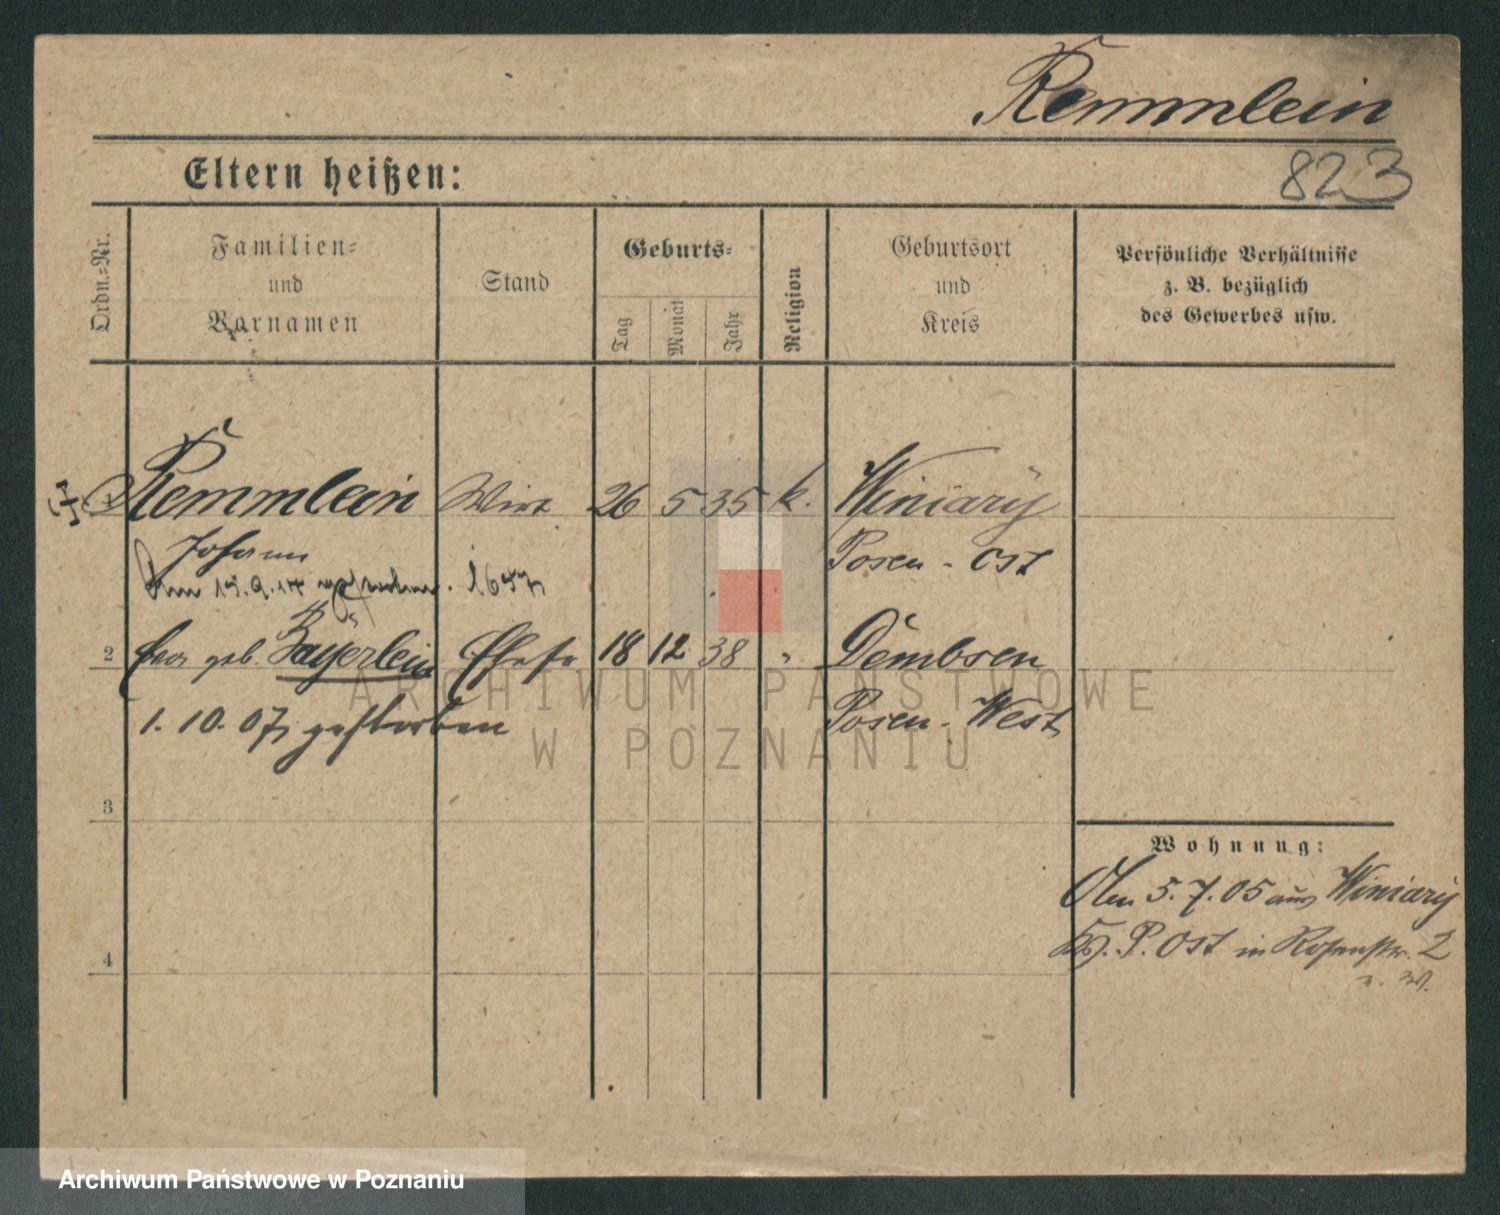 Remmlein
823
Eltern heißen:
Ordn.=Nr.
Familien=
und
Vornamen
Stand
Geburts=
Tag
Monat
Jahr
Religion
Geburtsort
und
Kreis
Persönliche Verhältnisse
z. B. bezüglich
des Gewerbes usw.
1 Remmlein Wirt 26 5 35 k. Winiary
Johann Posen - Ost
Am 19.9.14 gestorben. 1657
2 Eva geb. Bayerlein Ehefr 18 12 38 " Dembsen
1.10.07 gestorben Posen - West
3
Wohnung:
Am 5.7.05 aus Winiary
P. Ost in Rosenstr. 2
4
ARCHIWUM PAŃSTWOWE
W POZNANIU
Archiwum Państwowe w Poznaniu